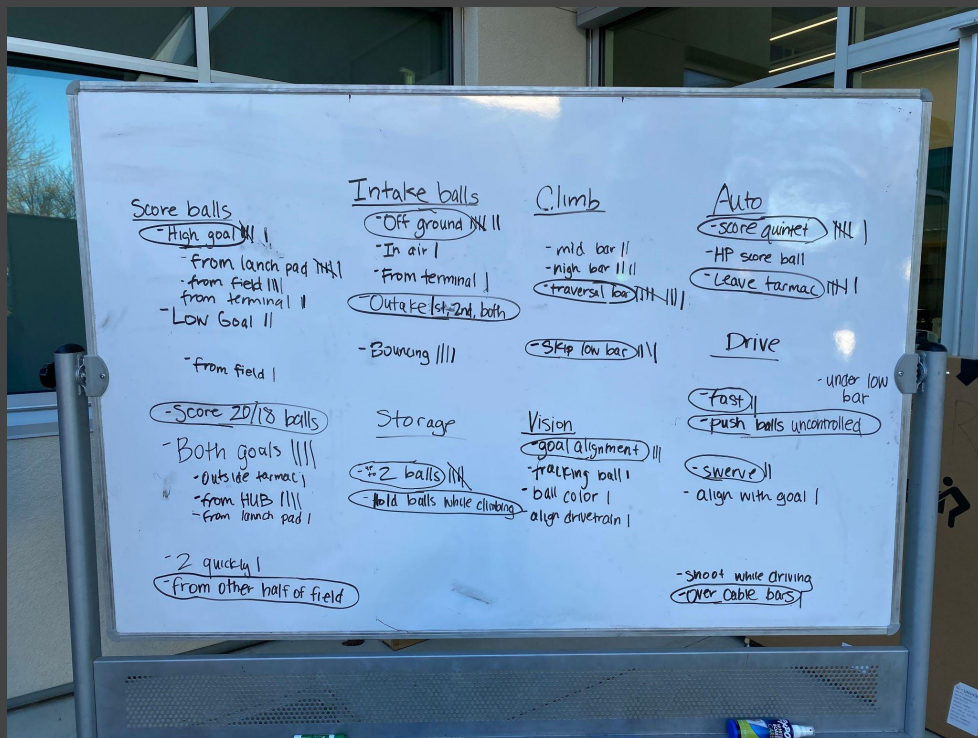 Score balls
- High goal 𝍸 |
- from lanch pad 𝍸 |
- from field ||||
from terminal ||
- Low Goal ||
- from field |
- Score 20/18 balls
- Both goals ||||
- Outside tarmac |
- from HUB ||||
- from lanch pad |
- 2 quickly |
- from other half of field
Intake balls
- Off ground 𝍸 ||
- In air |
- From terminal |
- Outake 1st, 2nd, both
- Bouncing ||||
Storage
2 balls 𝍸
- Hold balls while climbing
Climb
- mid bar ||
- high bar ||||
- traversal bar 𝍸 |||
- Skip low bar ||||
Vision
- goal alignment |||
- tracking ball |
- ball color |
- align drivetrain |
Auto
- score quintet 𝍸 |
- HP score ball
- Leave tarmac 𝍸 |
Drive
- under low
bar
- fast ||
- push balls uncontrolled
- swerve ||
- align with goal |
- shoot while driving
- Over cable bars |